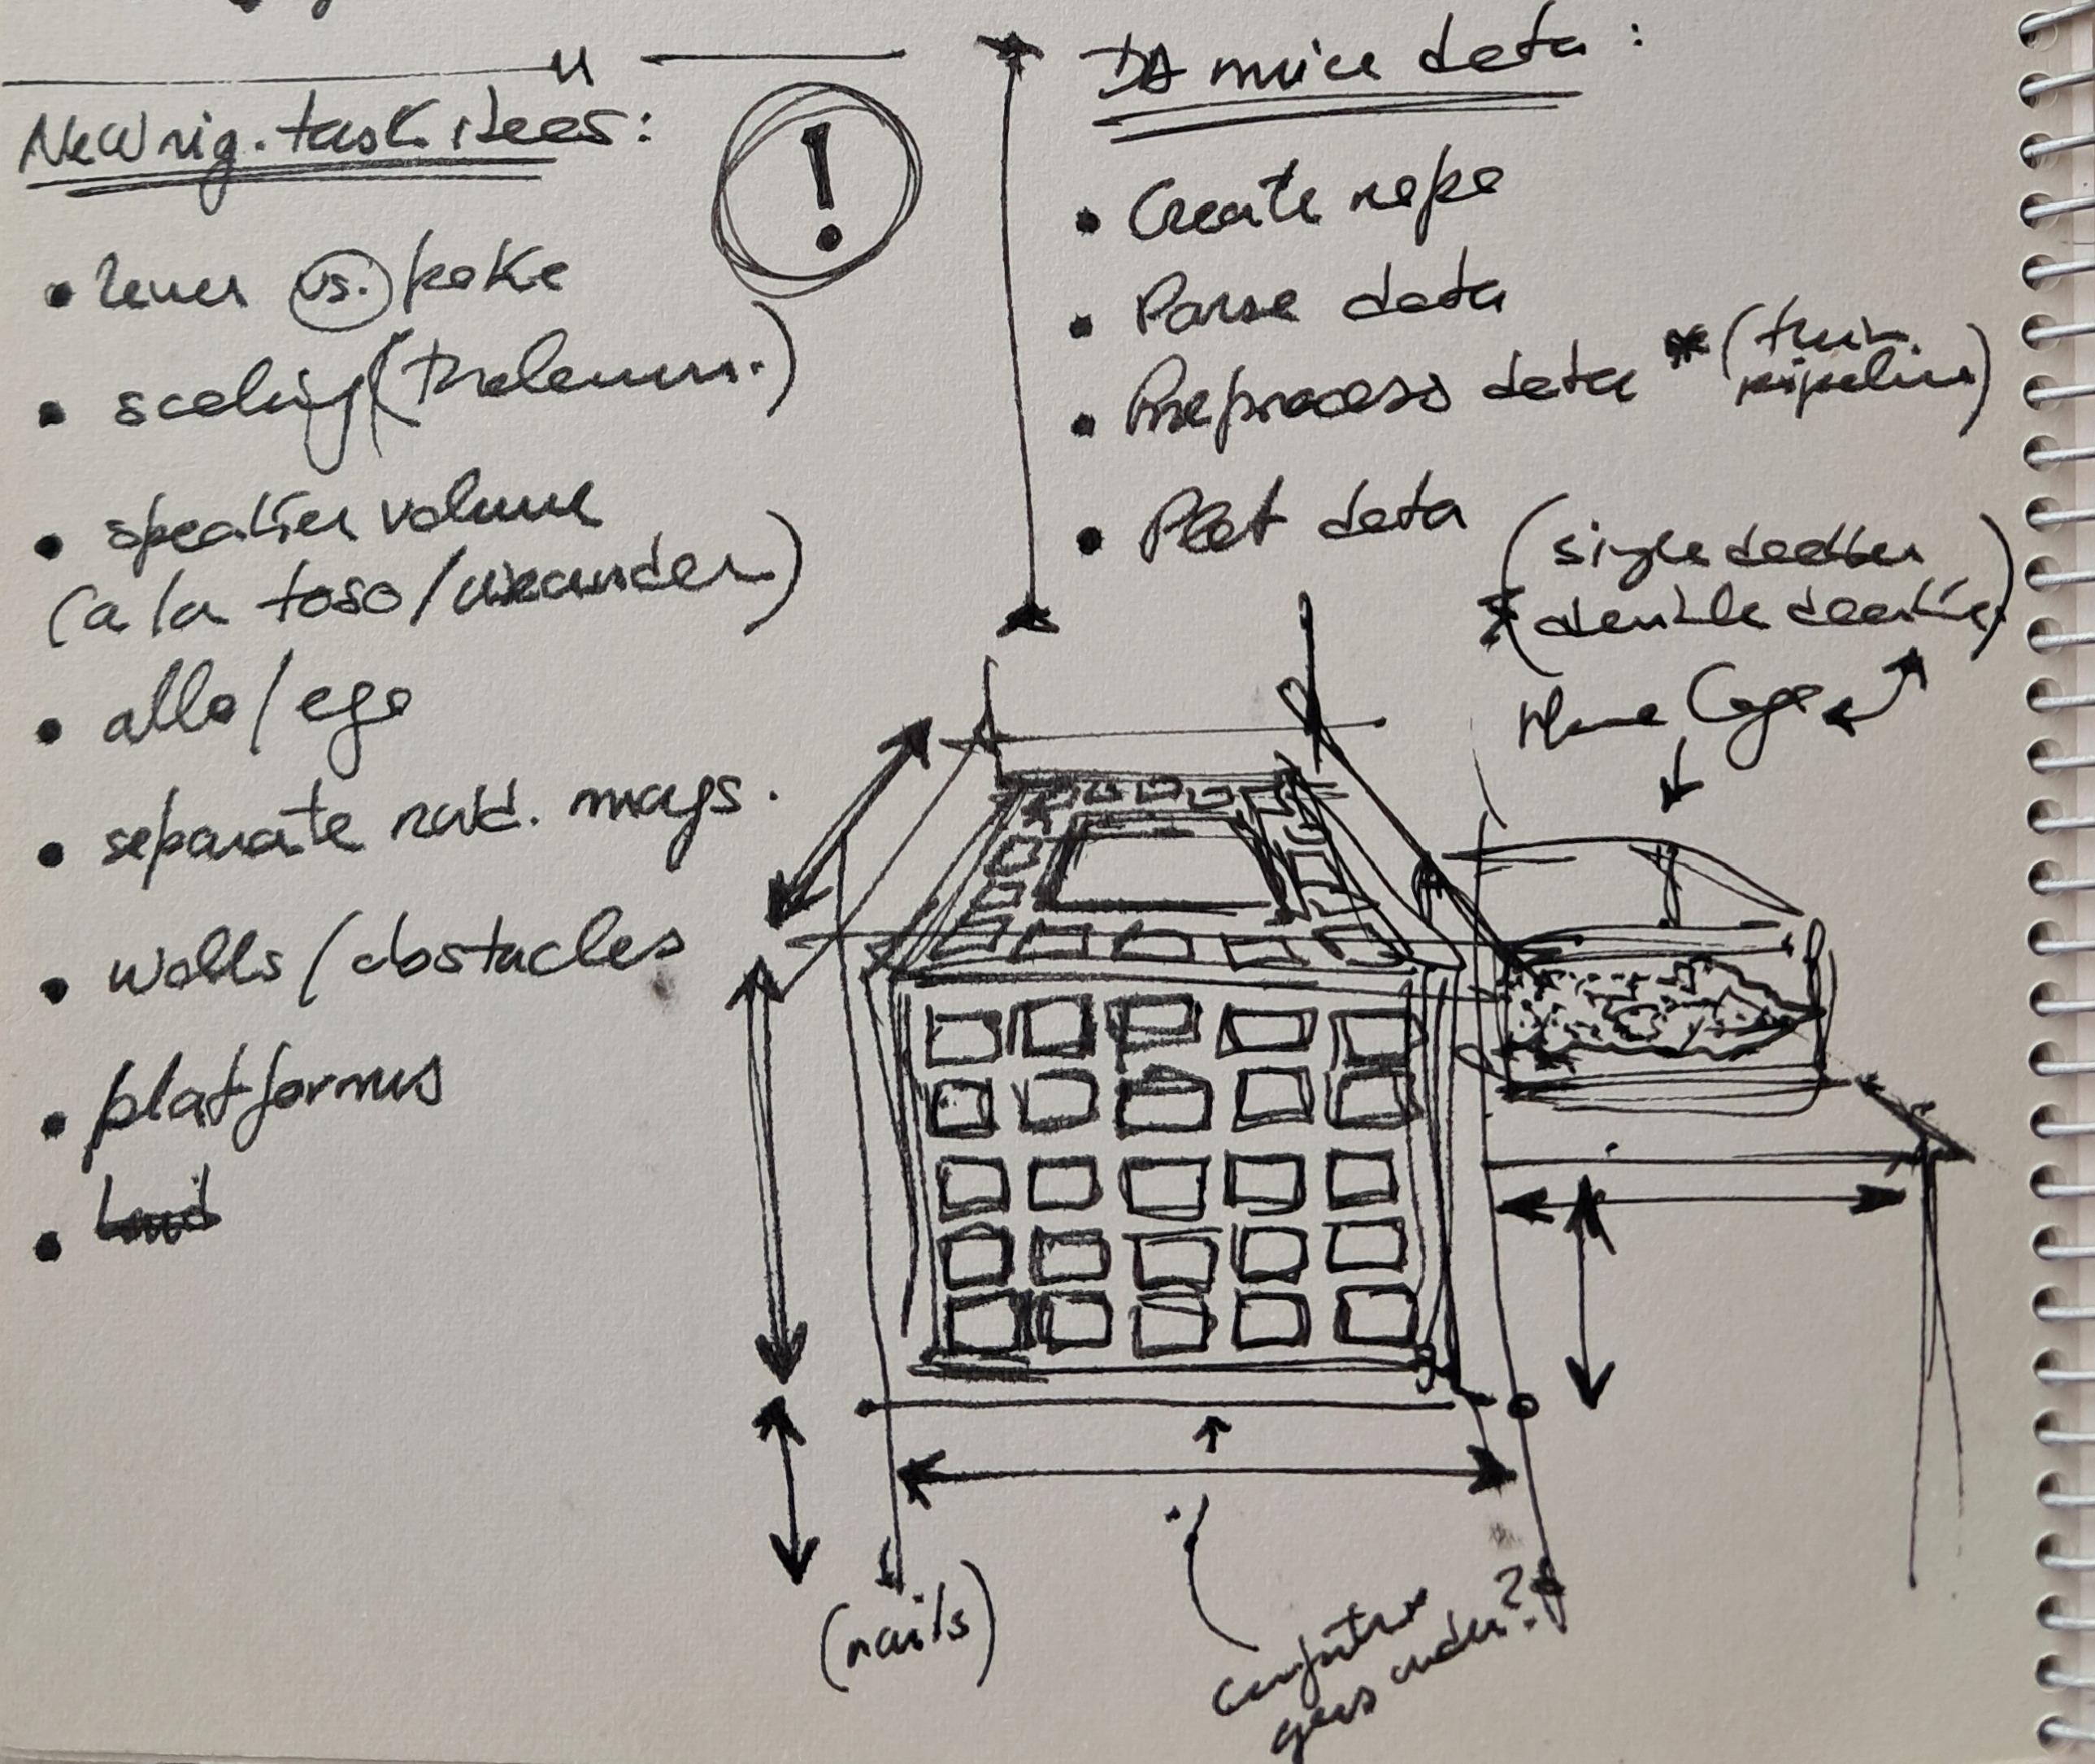 New rig. task ideas:
!
• lever vs. poke
• scaling (Thalamus.)
• speaker volume
(a la toso/
• allo/ego
• separate rwd. mags.
• walls/obstacles
• platforms
DA mice data:
• Create repo
• Parse data
• Preprocess data * (their pipeline)
• Plot data
(single decker
* double decker)
Home Cage
(nails)
computer
goes under?